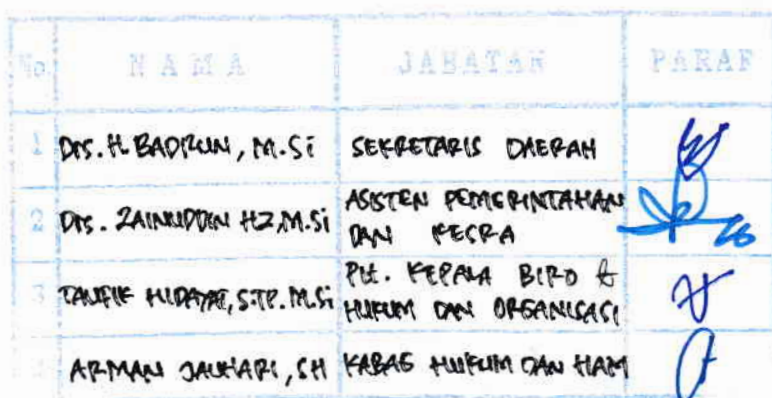 No. NAMA JABATAN PARAF
1 Drs. H. BADRUN, M.Si SEKRETARIS DAERAH
2 Drs. ZAINUDDIN HZ, M.Si ASISTEN PEMERINTAHAN
DAN KESRA
3 TAUFIK HIDAYAT, S.TP. M.Si Plt. KEPALA BIRO
HUKUM DAN ORGANISASI
ARMAN JAUHARI, SH KABAG HUKUM DAN HAM